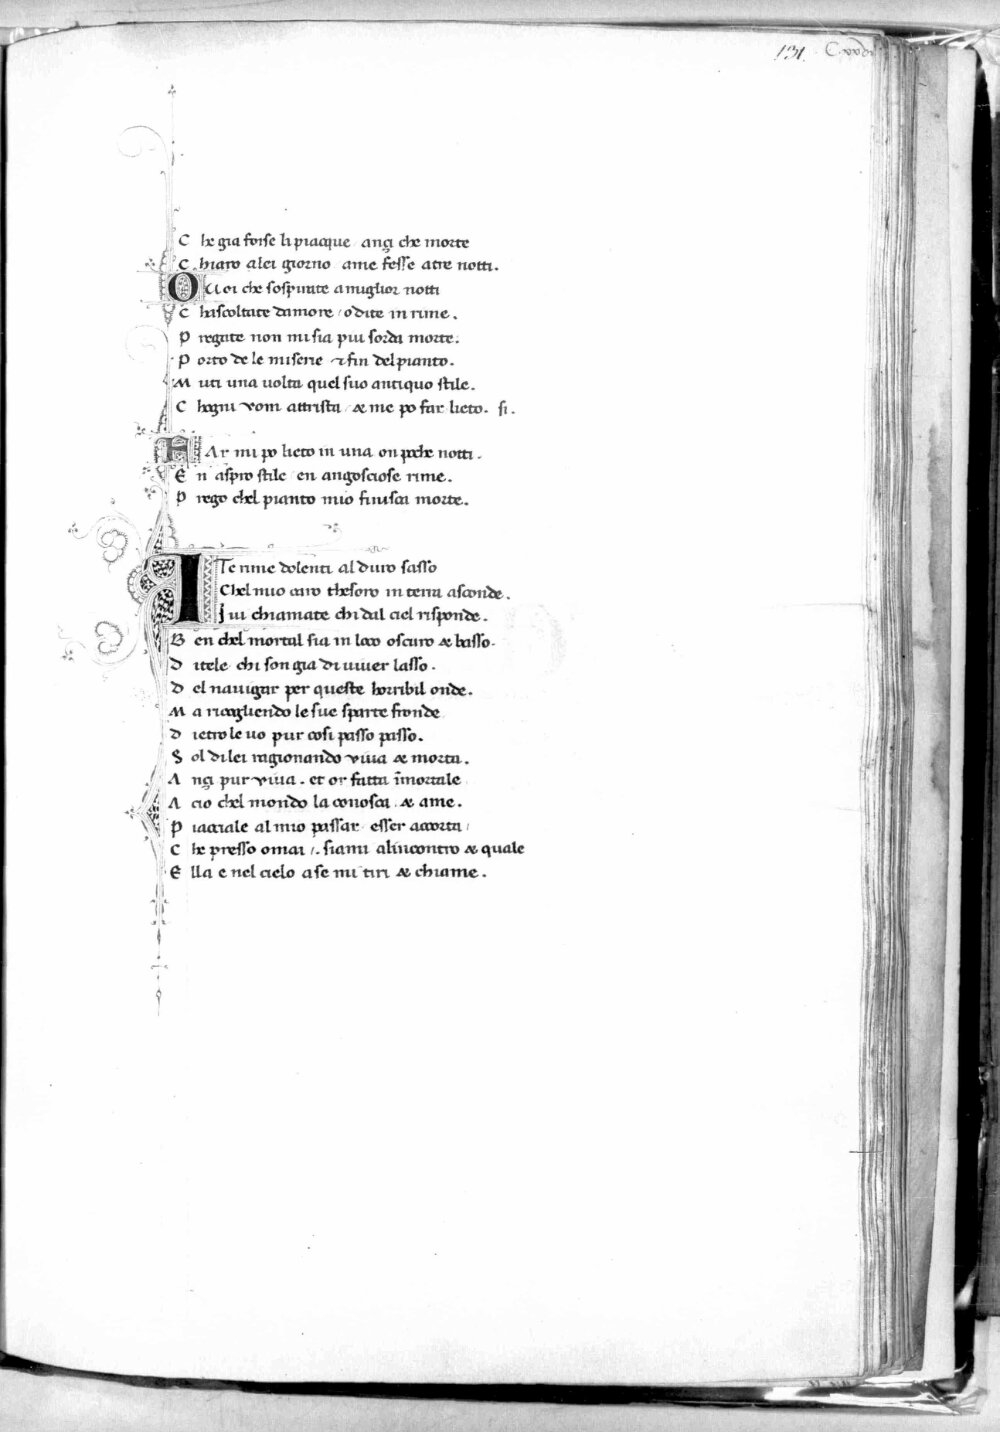 131. C.xxxi
C he gia forse li piacque / anzi che morte
C hiaro a lei giorno / a me fesse atre notti.
O Uoi che sospirate a miglior notti
C hascoltate damore / odite in rime.
P regate non mi sia piu sorda morte.
P orto de le miserie ⁊ fin del pianto.
M uti una uolta quel suo antiquo stile.
C hogni vom attrista / & me po far lieto. fi.
F Ar mi po lieto in una on poche notti.
E n aspro stile / en angosciose rime.
P rego chel pianto mio finisca morte.
I Te rime dolenti al duro sasso
Chel mio caro thesoro in terra asconde.
Iui chiamate chi dal ciel risponde.
B en chel mortal sia in loco oscuro & basso.
D itele / chi son gia di uiuer lasso.
D el nauigar per queste horribil onde.
M a ricogliendo le sue sparte fronde
D ietro le uo pur cosi passo passo.
S ol di lei ragionando viua & morta.
A nzi pur viua. et or fatta īmortale
A cio chel mondo la conosca / & ame.
P iacciale al mio passar / esser accorta /
C he presso omai /. siami alincontro & quale
E lla e nel cielo a se mi tiri & chiame.